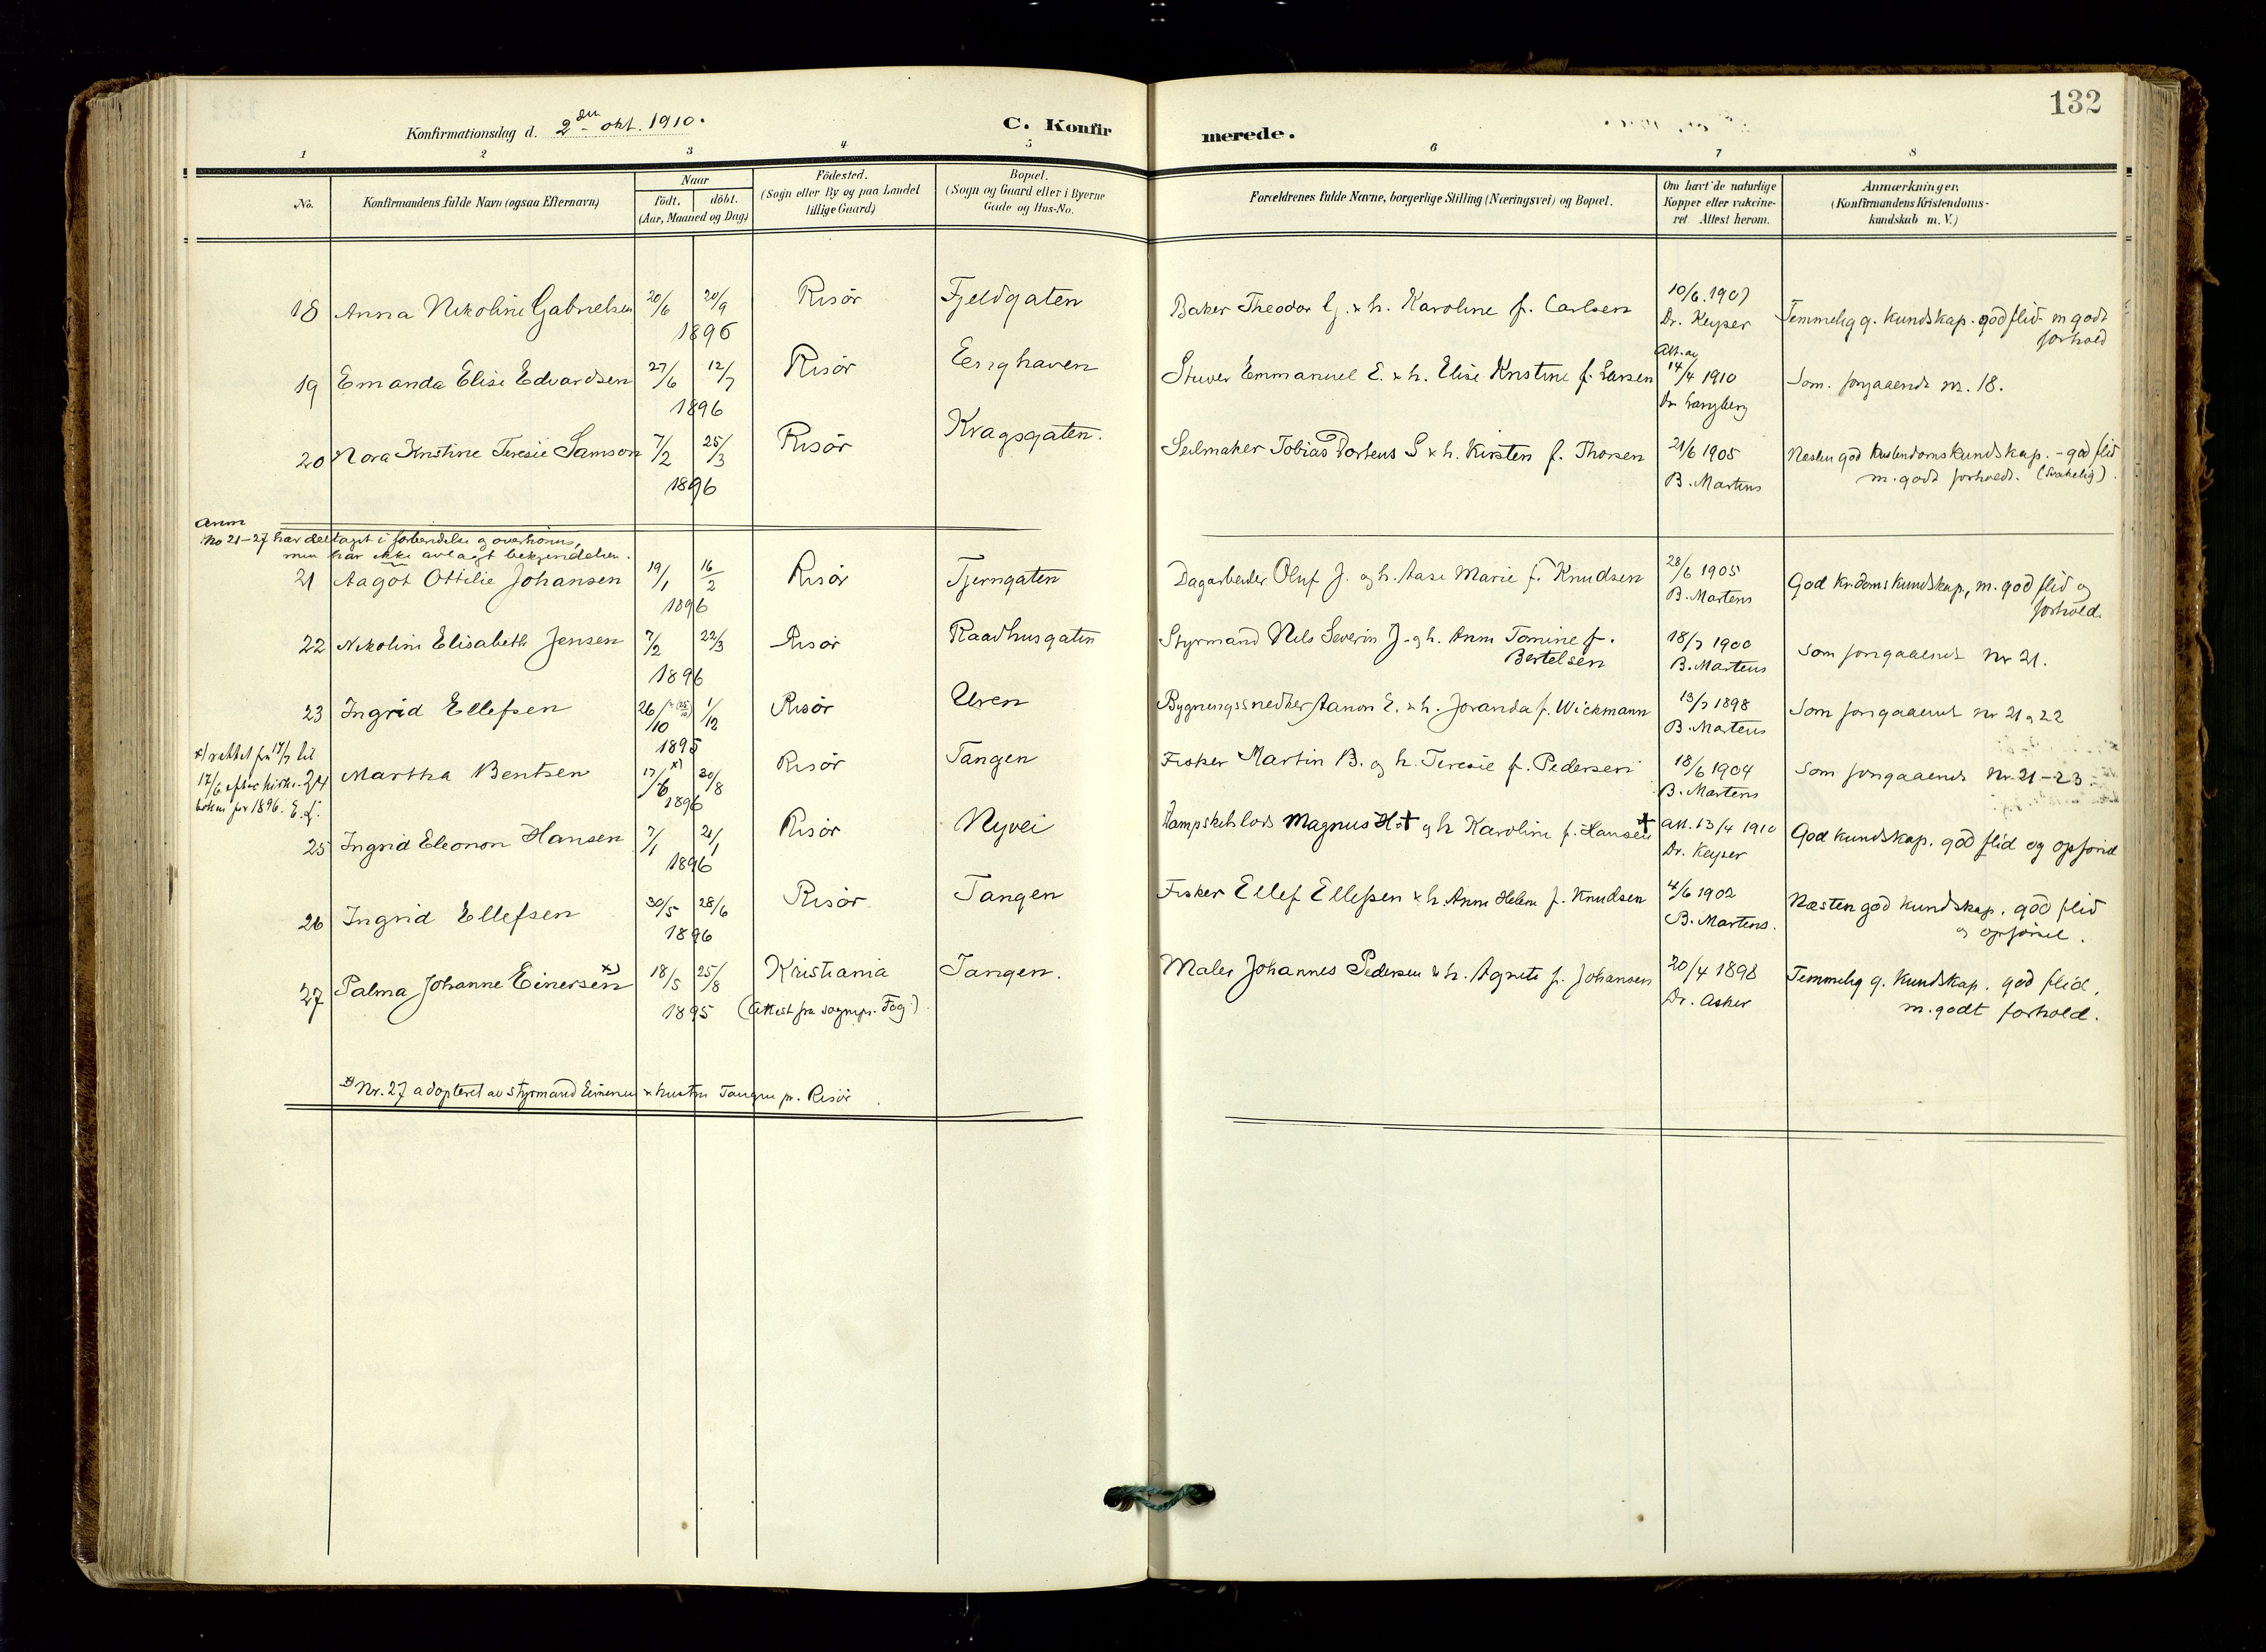 132
Konfirmationsdag d. 2den okt. 1910.
C. Konfirmerede.
1 2 3 4 5 6 7 8
No.
Konfirmandens fulde Navn (ogsaa Efternavn)
Naar
födt. döbt.
(Aar, Maaned og Dag)
Födested.
(Sogn eller By og paa Landet
tillige Gaard)
Bopæl.
(Sogn og Gaard eller i Byerne
Gade og Hus-No.
Forældrenes fulde Navne, borgerlige Stilling (Næringsvei) og Bopæl.
Om havt de naturlige
Kopper eller vakcine-
ret Attest herom.
Anmærkninger.
(Konfirmandens Kristendoms-
kundskab m. V.)
18 Anna Nikoline Gabrielsen 20/6 20/9 Risör Fjeldgaten Baker Theodor G. & h. Karoline f. Carlsen 10/6.1907 Temmelig g. kundskap. god flid m godt
1896 Dr. Keyser forhold
19 Emanda Elise Edvardsen 27/6 12/7 Risör Enghaven Stuver Emmanuel E. & h. Elise Kristine f. Larsen Att. av 14/4 1910 Som forgaaende nr. 18.
1896 Dr Langberg
20 Nora Kristine Teresie Samson 7/2 25/3 Risör Kragsgaten. Seilmaker Tobias Porteus S & h. Kirsten f. Thorsen 21/6 1905 Næsten god kristendomskundskap. - god flid
1896 B. Martens m. godt forhold. (Svakelig).
Anm
No 21-27 har deltaget i forberedelse og overhöring,
men har ikke avlagt bekjendelsen.
21 Aagot Ottilie Johansen 19/1 16/2 Risör Tjerngaten Dagarbeider Oluf J. og h. Aase Marie f. Knudsen 28/6 1905 God kr.domskundskap, m. god flid og
1896 B. Martens forhold.
22 Nikoline Elisabeth Jensen 7/2 22/3 Risör Raadhusgaten Styrmand Nils Severin J. og h. Anne Tomine f. 18/7 1900 Som forgaaende nr 21.
1896 Bertelsen B. Martens
23 Ingrid Ellefsen 26/10 1/12 Risör Uren Bygningssnedker Aanon E. & h. Joranda f. Wickmann 13/7 1898 Som forgaaende nr 21 og 22
1895 B. Martens
x) rettet fra 17/7 til
17/6 efter kirke-
boken for 1896. E. J.
24 Martha Bentsen 17/6 x) 30/8 Risör Tangen Fisker Martin B. og h. Teresie f. Pedersen 18/6 1904 Som forgaaende nr. 21-23.
1896 B. Martens
25 Ingrid Eleonora Hansen 7/1 21/1 Risör Nyvei Dampskibslods Magnus H. † og h Karoline f. Hansen † Att. 13/4 1910 God kundskap. god flid og opförsel
1896 Dr. Keyser
26 Ingrid Ellefsen 30/5 28/6 Risör Tangen Fisker Ellef Ellefsen & h. Anne Helene f. Knudsen 4/6 1902 Næsten god kundskap. god flid
1896 B. Martens. og opförsel.
27 Palma Johanne Einersen x) 18/5 25/8 Kristiania Tangen. Maler Johannes Pedersen & h. Agnete f. Johansen 20/4 1898 Temmelig g. kundskap. god flid,
1895 (Attest fra sognepr. Fog) Dr. Asker m. godt forhold.
x) Nr. 27 adopteret av styrmand Einersen & hustru Tangen pr. Risör